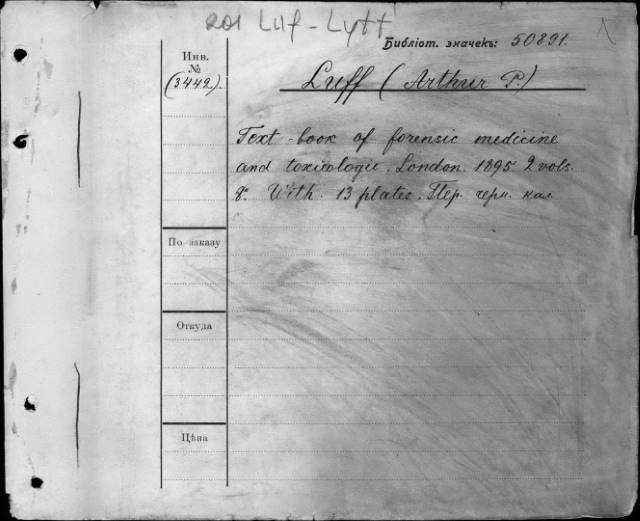 201 Luf - Lytt
Библіот. значекъ: 50891.
Инв.
№
(3442).
Luff (Arthur P.)
Text-book of forensic medicine
and toxicologie. London. 1895. 2 vols.
8. With. 13 plates. Пер. черн. кол.
По заказу
Откуда
Цѣна